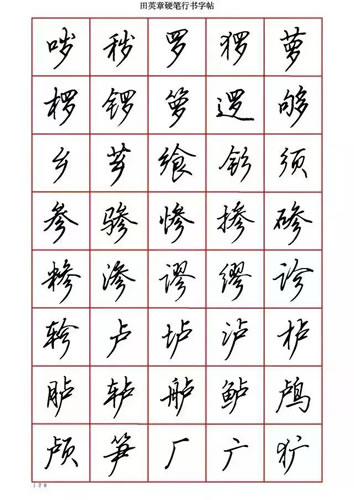 田英章硬笔行书字帖
哆 秽 罗 猡 萝
椤 锣 箩 逻 够
乡 芗 飨 钐 须
参 骖 惨 掺 碜
糁 渗 谬 缪 诊
轸 卢 垆 泸 栌
胪 轳 舻 鲈 鸬
颅 笋 厂 广 犷